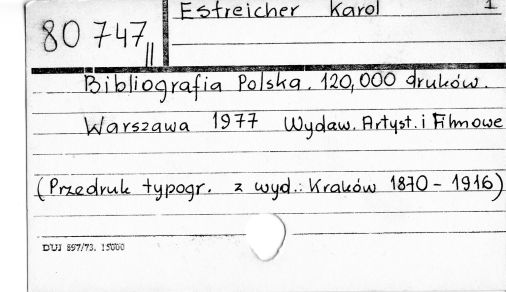 Estreicher Karol 1
80 747
Bibliografia Polska. 120,000 druków.
Warszawa 1977 Wydaw. Artyst. i Filmowe
(Przedruk typogr. z wyd.: Kraków 1870-1916)
DUJ 897/73. 15000